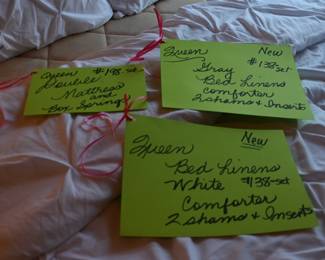 Queen $198-set
Double
Mattress
and
Box Springs
Queen New
$138-set
Gray
Bed Linens
Comforter
2 shams & Inserts
Queen New
Bed Linens
White $138-set
Comforter
2 shams & Inserts